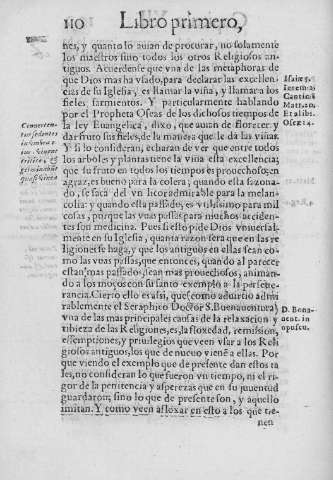 110 Libro primero,
nes, y quanto lo auian de procurar, no solamente
los maestros sino todos los otros Religiosos an-
tiguos. Acuerdense que vna de las metaphoras de
que Dios mas ha vsado, para declarar las excellen-
cias de su Iglesia, es llamar la viña, y llamar a los
fieles, sarmientos. Y particularmente hablando
por el Propheta Oseas de los dichosos tiempos de
la ley Euangelica, dixo, que auian de florecer, y
dar fruto sus fieles, de la manera que le da las viñas.
Y si lo consideran, echaran de ver que entre todos
los arboles y plantas tiene la viña esta excellencia;
que su fruto en todos los tiempos es prouechoso; en
agraz, es bueno para la colera; quando esta sazona-
do, se saca del vn licor admirable para la melan-
colia: y quando esta passado, es vtilissimo para mil
cosas, porque las vuas passas para muchos acciden-
tes son medicina. Pues si esto pide Dios vniuersal-
mente en su Iglesia, quanta razon sera que en las re
ligiones se haga, y que los antiguos en ellas sean co-
mo las vuas passas, que entonces, quando al parecer
estan mas passados, sean mas prouechosos, animan-
do a los moços con su santo exemplo a la perseue-
rancia. Cierto ello es assi, que (como aduirtio admi
rablemente el Seraphico Doctor S. Buenauentura)
vna de las mas principales causas de la relaxacion y
tibieza de las Religiones, es, la floxedad, remission,
essemptiones, y priuilegios que veen vsar a los Reli
giosos antiguos, los que de nueuo viene a ellas. Por
que viendo el exemplo que de presente dan estos ta
les, no consideran lo que fueron vn tiempo, ni el ri-
gor de la penitencia y asperezas que en su juuentud
guardaron; sino lo que de presente son, y aquello
imitan. Y como veen afloxar en esto a los que tie-
nen
Isaiæ 5.
Matt. 20.
Et alibi.
Oseæ 14.
D. Bona-
uent. in
opuscu.